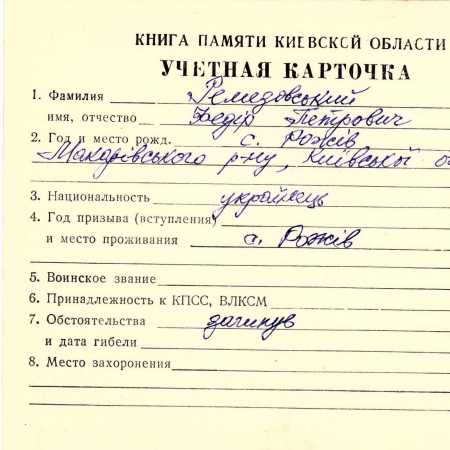 КНИГА ПАМЯТИ КИЕВСКОЙ ОБЛАСТИ
УЧЕТНАЯ КАРТОЧКА
1. Фамилия Ремезовський
имя, отчество Федір Петрович
2. Год и место рожд. с. Рожів
Макарівського р-ну, Київської о
3. Национальность українець
4. Год призыва (вступления)
и место проживания с. Рожів
5. Воинское звание
6. Принадлежность к КПСС, ВЛКСМ
7. Обстоятельства загинув
и дата гибели
8. Место захоронения